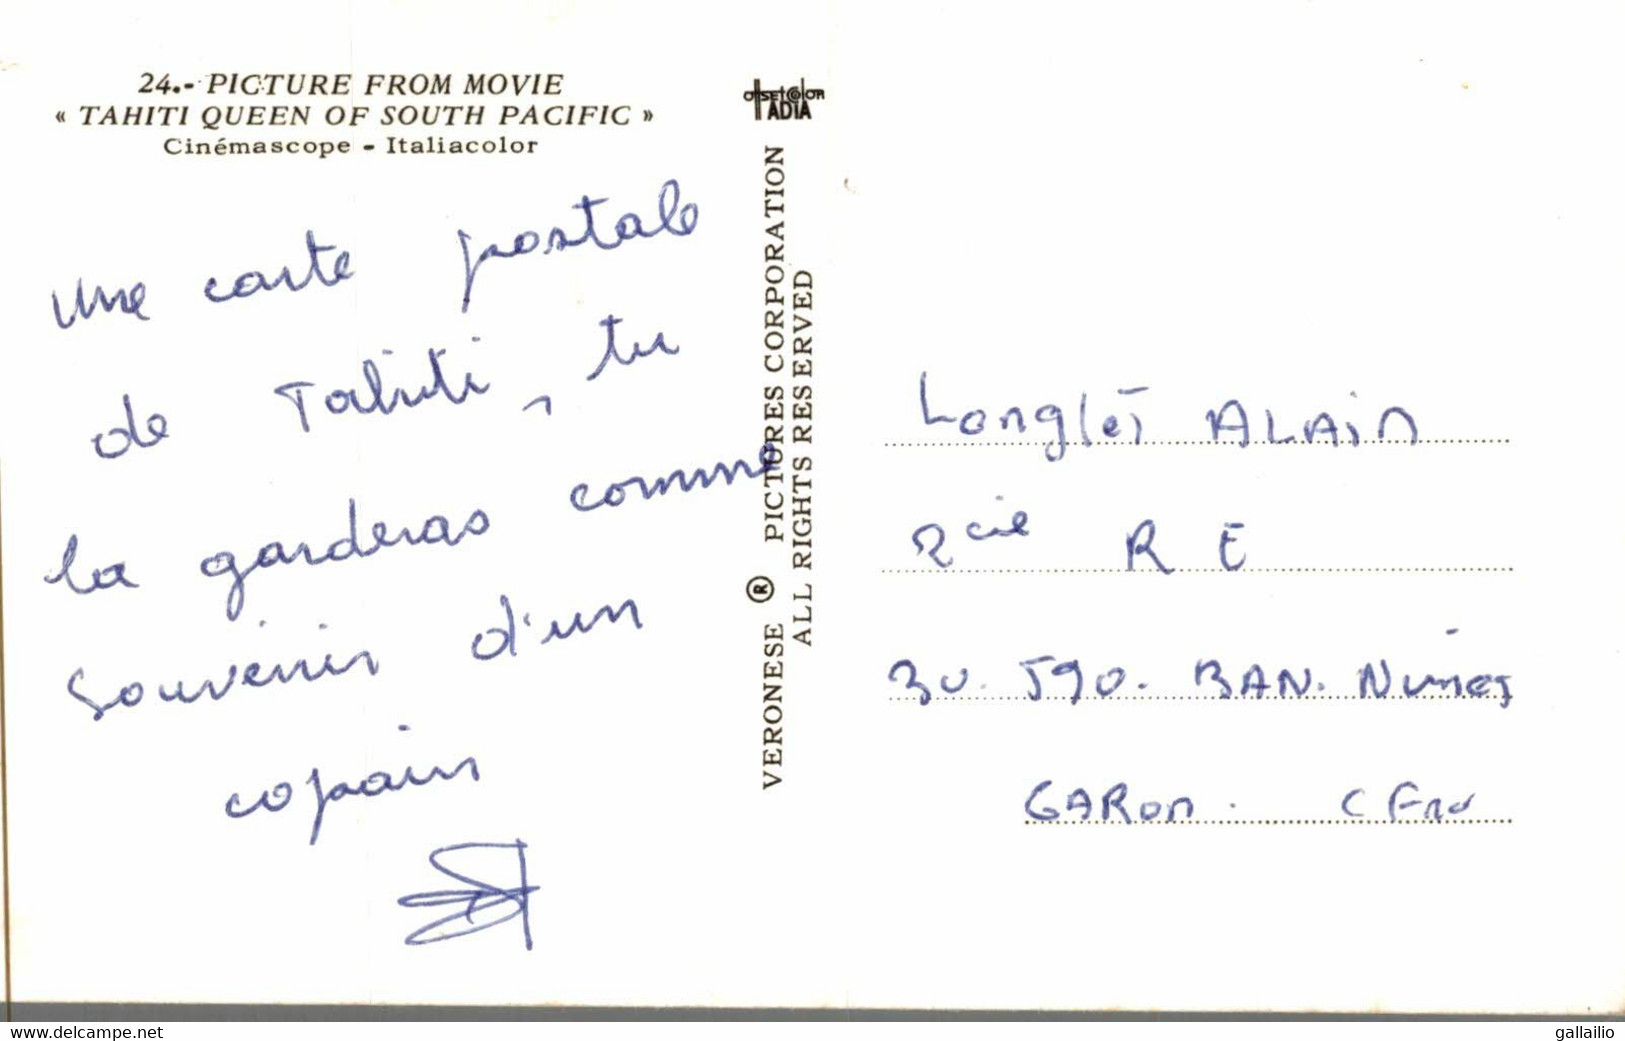 24.- PICTURE FROM MOVIE
« TAHITI QUEEN OF SOUTH PACIFIC »
Cinémascope - Italiacolor
une carte postale
de Tahiti, tu
la garderas comme
souvenir d'un
copain
OffsetColor
TADIA
VERONESE ® PICTURES CORPORATION
ALL RIGHTS RESERVED
Longlet ALAIN
2cie R E
590. BAN. Nimes
GARON.
www.delcampe.net
gallailio